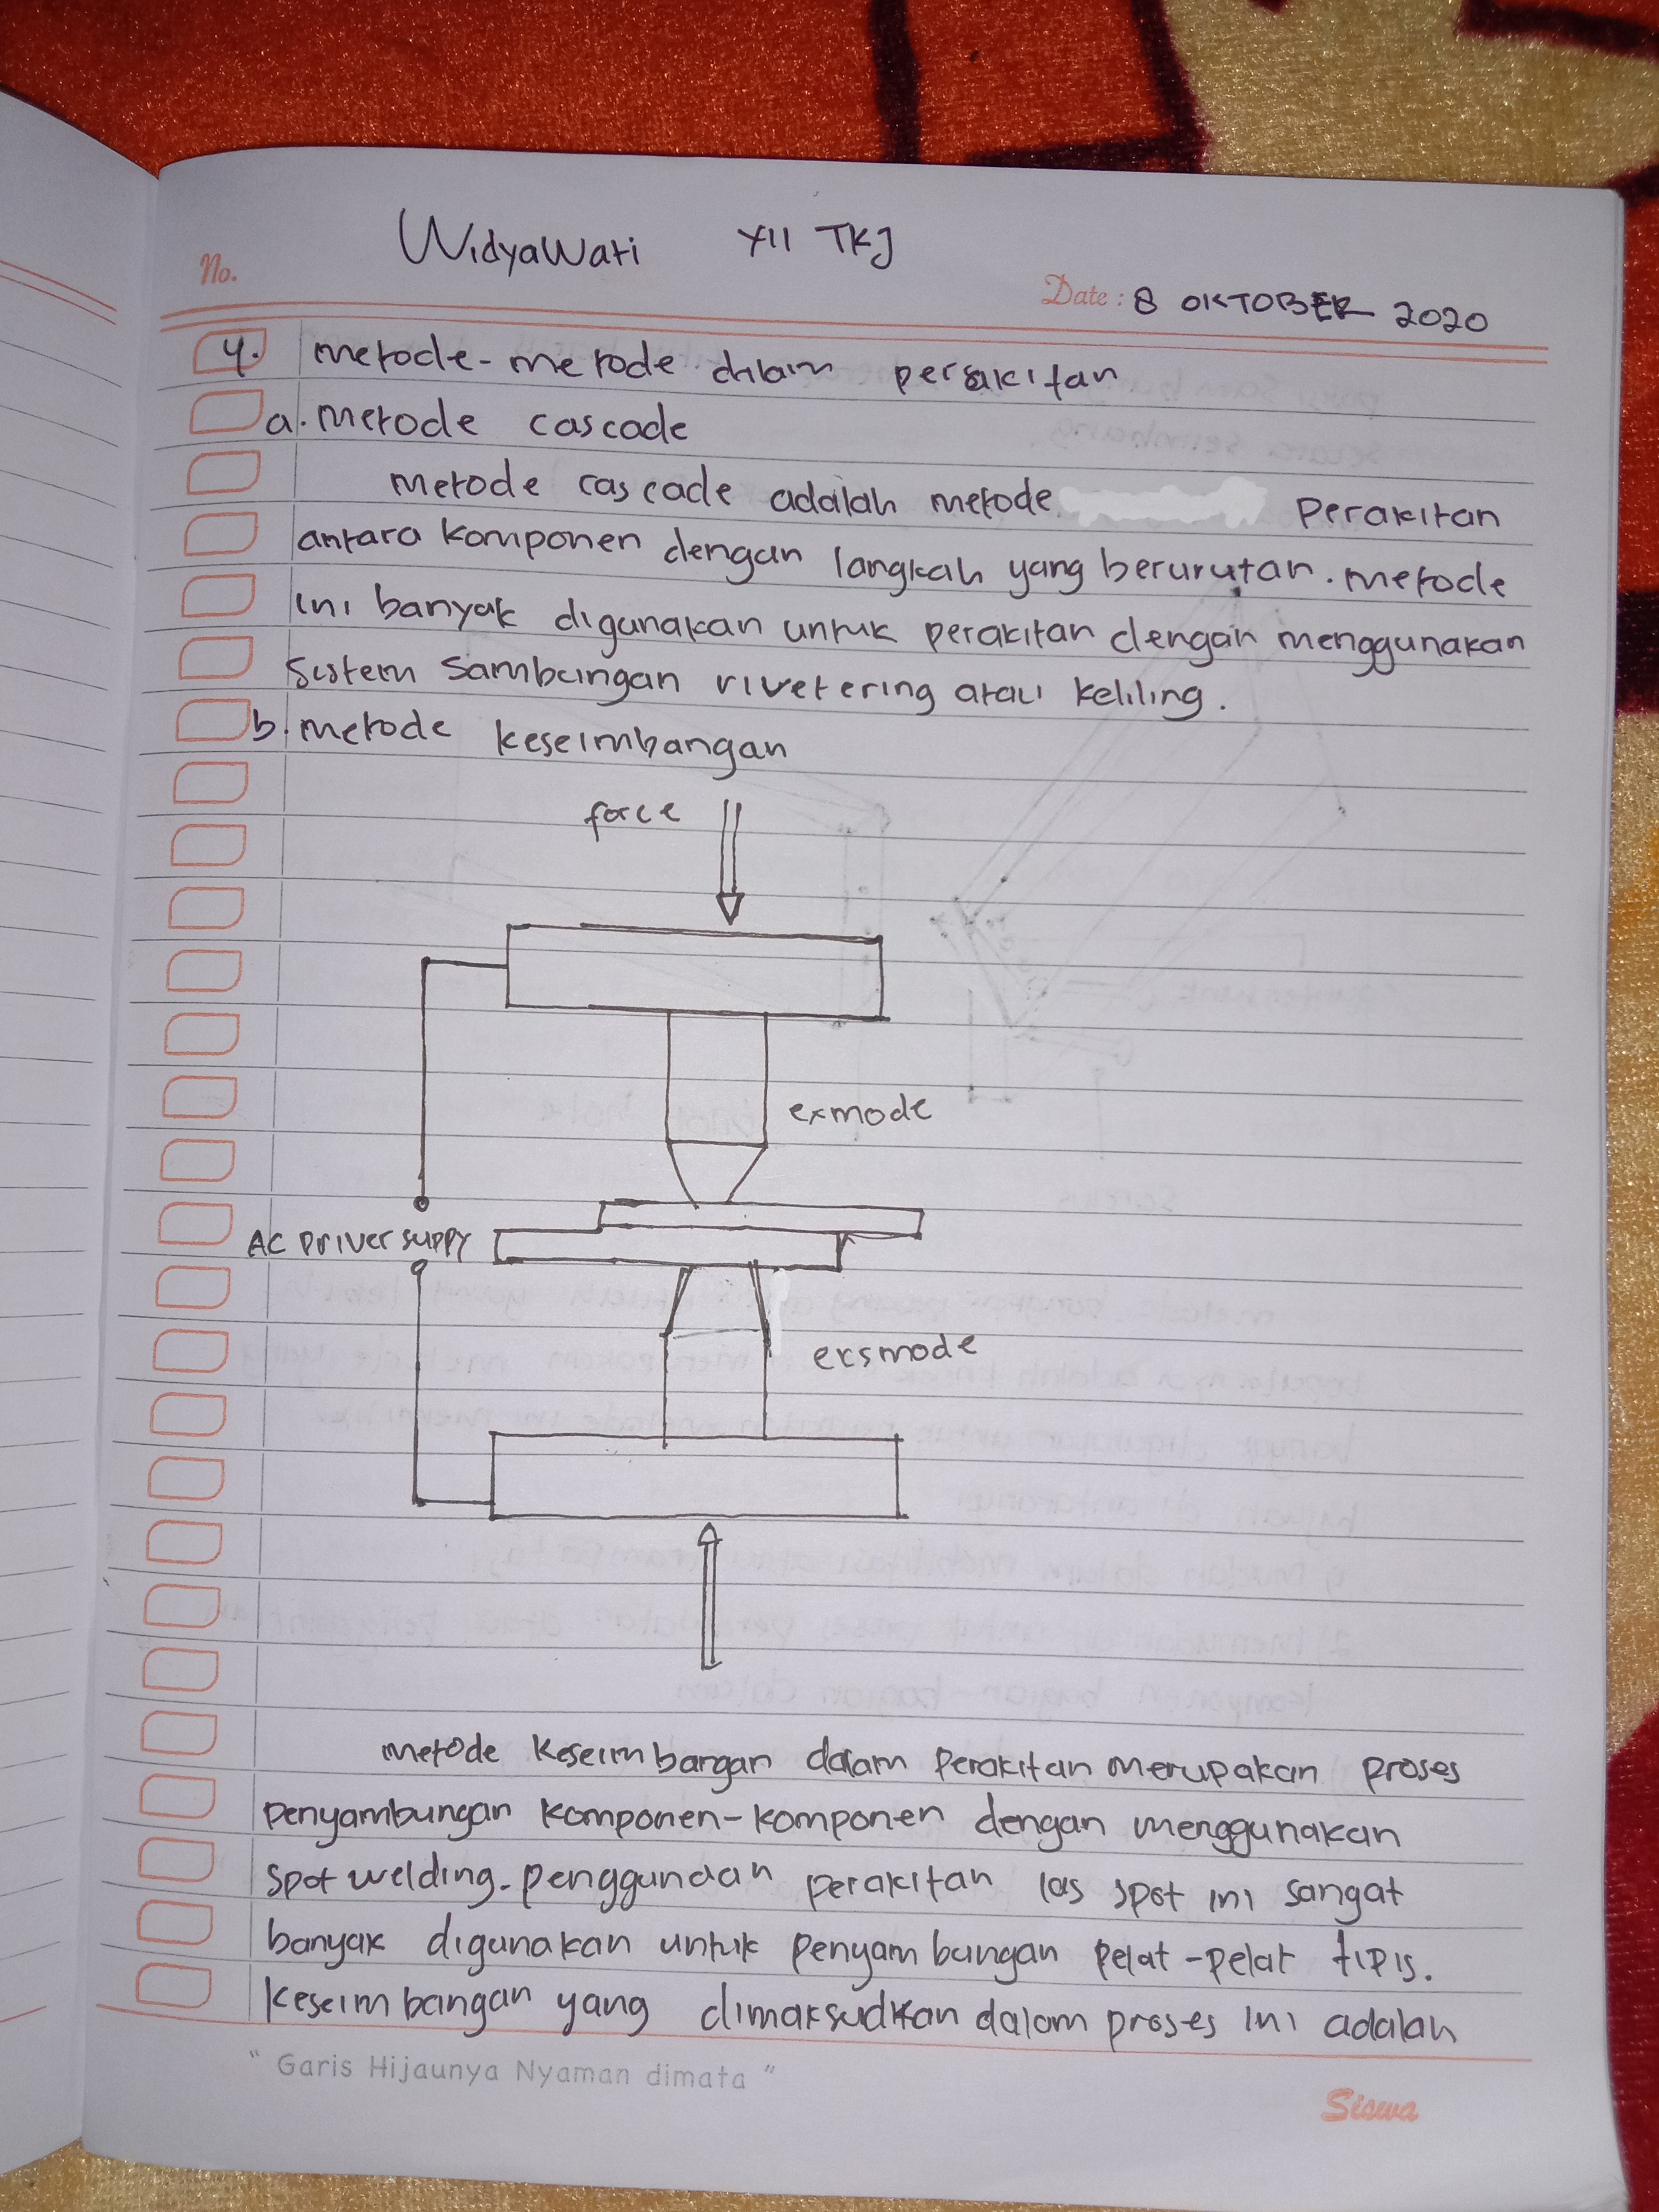 WidyaWati XII TKJ
No.
Date : 8 OKTOBER 2020
4. metode-metode dalam perakitan
a. metode cascade
metode cascade adalah metode perakitan
antara komponen dengan langkah yang berurutan. metode
ini banyak digunakan untuk perakitan dengan menggunakan
sistem sambungan rivetering atau keliling.
b. metode keseimbangan
force
exmode
AC Priver suppy
exsmode
metode keseimbangan dalam perakitan merupakan proses
penyambungan komponen-komponen dengan menggunakan
spot welding. penggunaan perakitan las spot ini sangat
banyak digunakan untuk penyambungan pelat-pelat tipis.
keseimbangan yang dimaksudkan dalam proses ini adalah
" Garis Hijaunya Nyaman dimata "
Siswa